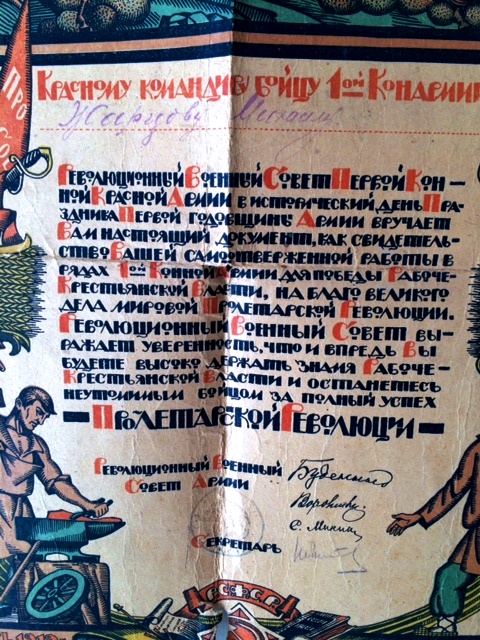 Красному командиру бойцу 1ой Конармии
Михаилу
Революционный Военный Совет Первой Кон-
ной Красной Армии в исторический день пра-
здника Первой годовщины Армии вручает
Вам настоящий документ, как свидетель-
ство Вашей самоотверженной работы в
рядах 1ой Конной Армии для победы Рабоче-
Крестьянской Власти, на благо великого
дела мировой Пролетарской Революции.
Революционный Военный Совет вы-
ражает уверенность, что и впредь Вы
будете высоко держать знамя Рабоче-
Крестьянской Власти и останетесь
неутомимым бойцом за полный успех
— Пролетарской Революции —
Революционный Военный
Совет Армии
Буденный
Ворошилов.
С. Минин
Секретарь
РСФСР
1919
ПРО
СОЕ